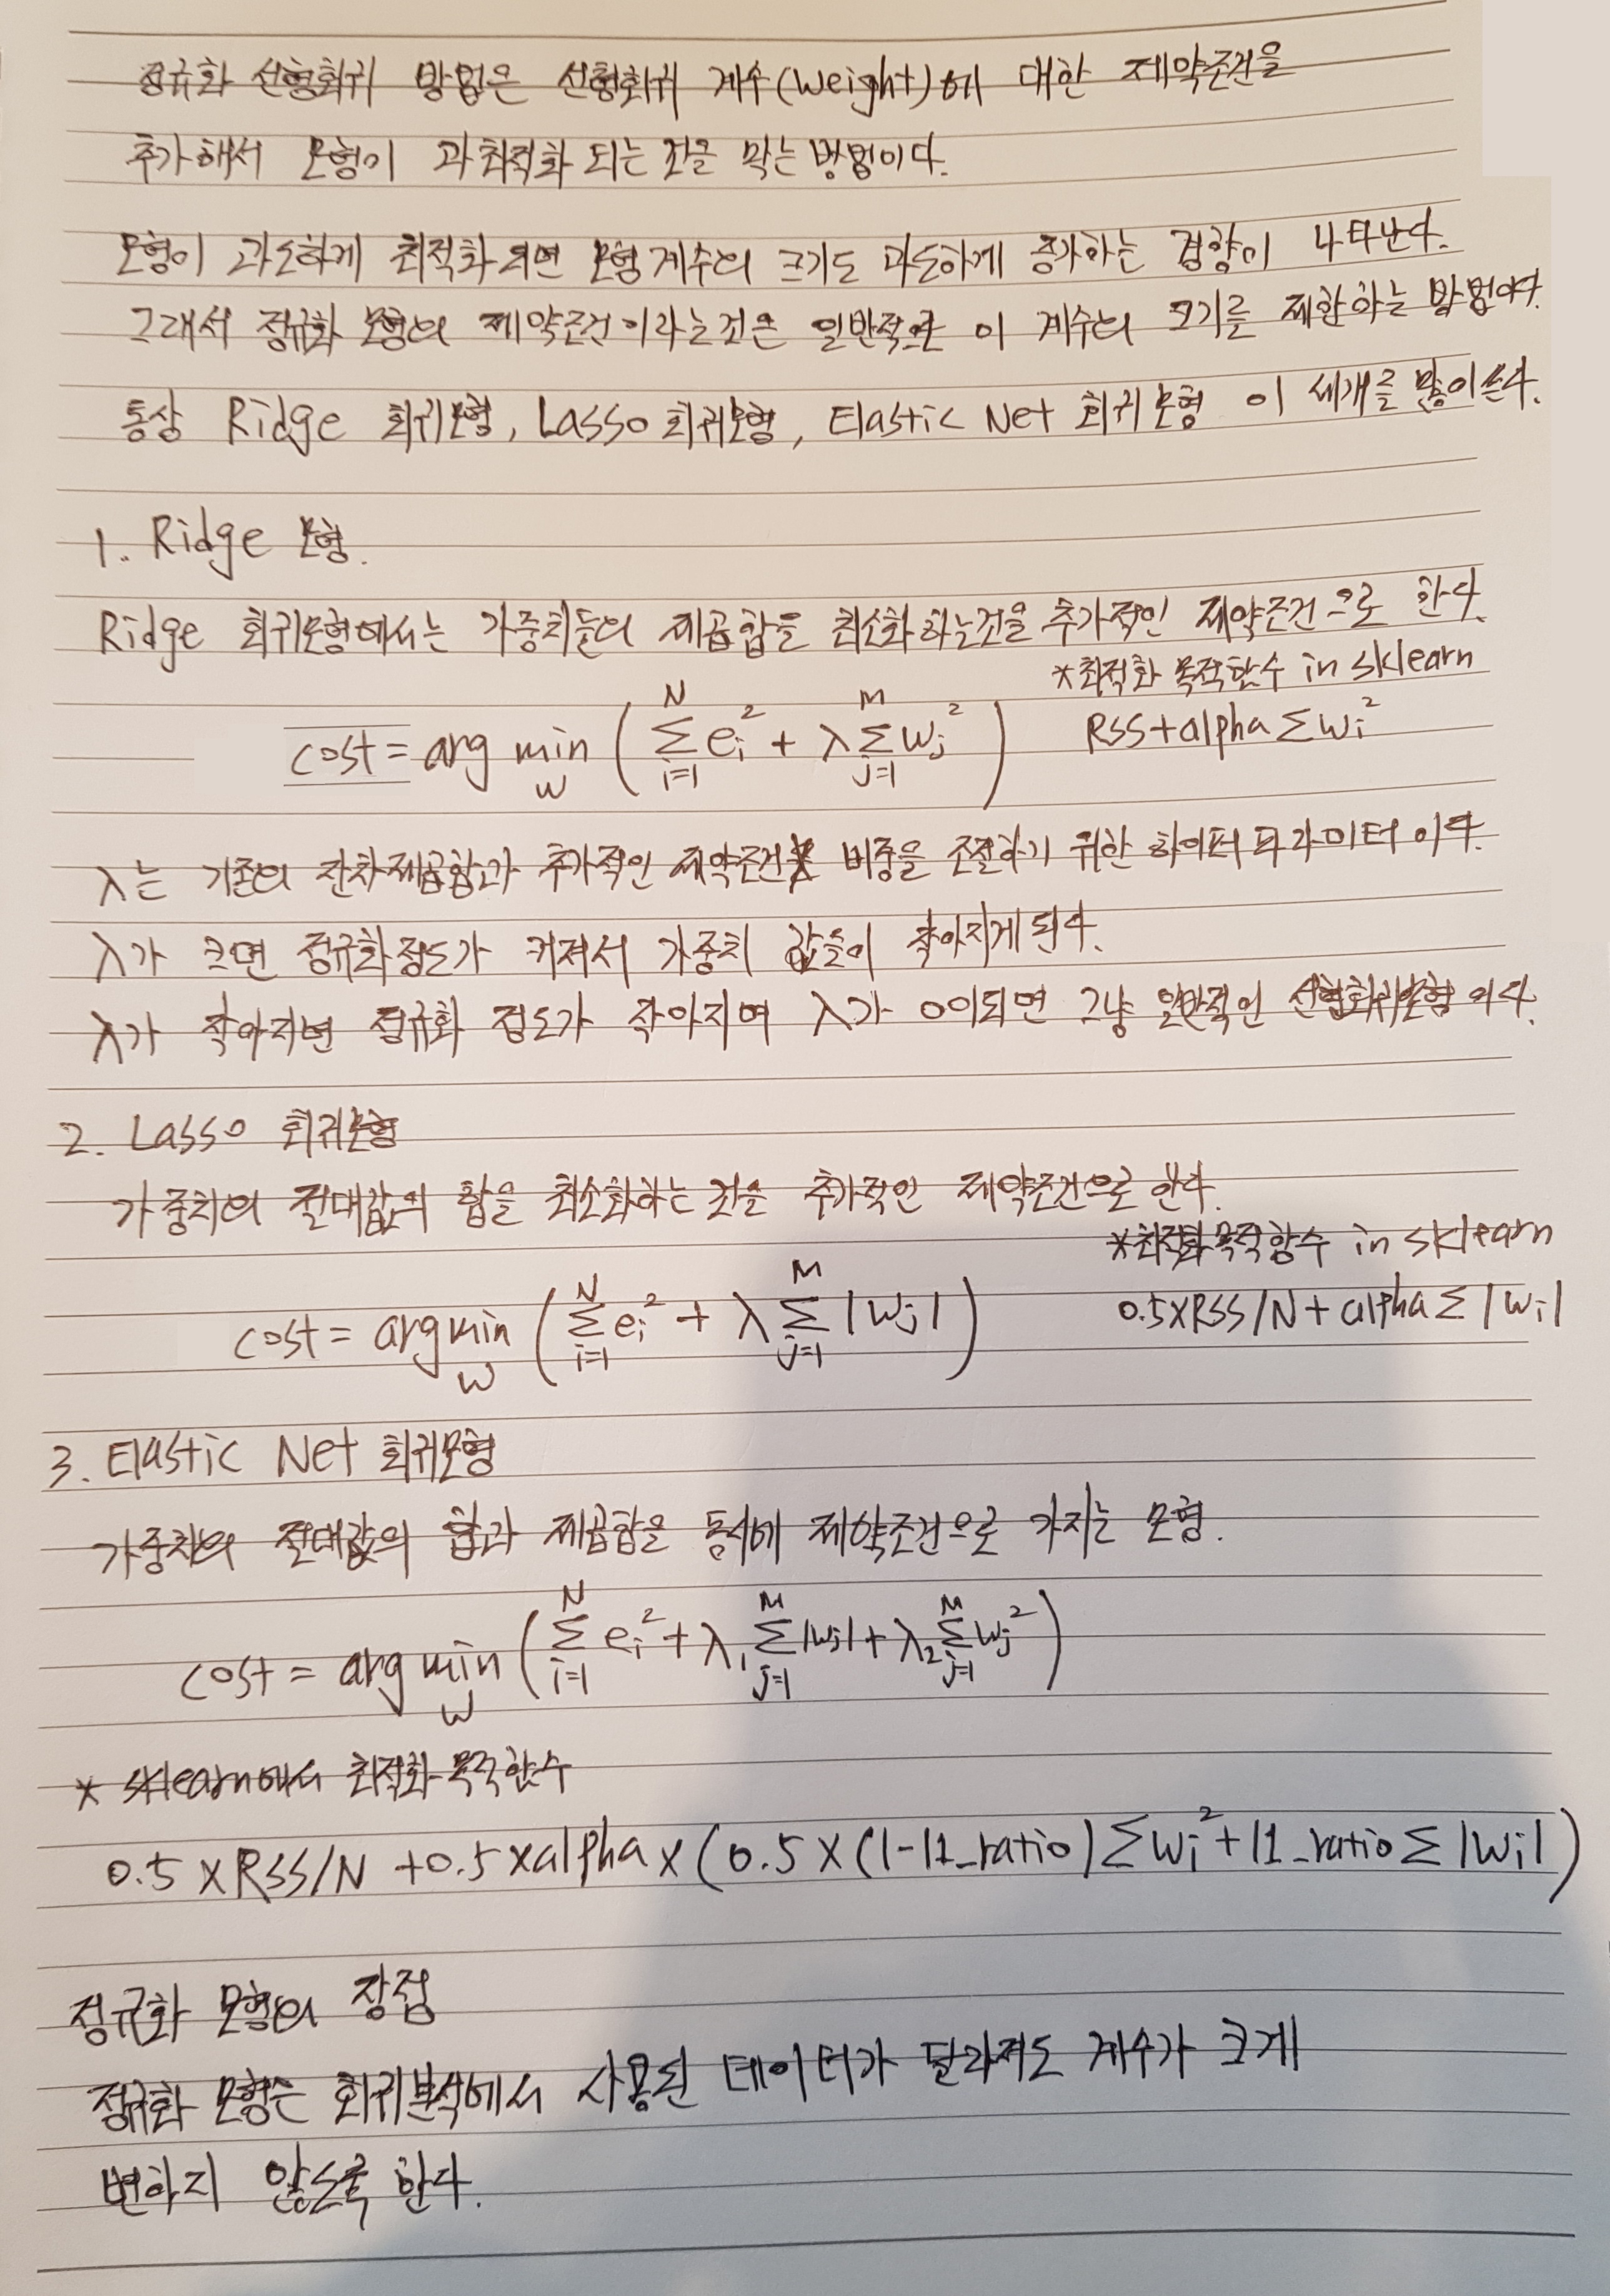 정규화 선형회귀 방법은 선형회귀 계수(Weight)에 대한 제약조건을
추가해서 모형이 과최적화 되는 것을 막는 방법이다.
모형이 과도하게 최적화 되면 모형 계수의 크기도 과도하게 증가하는 경향이 나타난다.
그래서 정규화 모형의 제약조건이라는것은 일반적으로 이 계수의 크기를 제한하는 방법이며.
통상 Ridge 회귀모형, Lasso 회귀모형, Elastic Net 회귀모형 이 세개를 많이쓴다.
1. Ridge 모형.
Ridge 회귀모형에서는 가중치들의 제곱합을 최소화하는것을 추가적인 제약조건으로 한다.
*최적화 목적함수 in sklearn
cost = arg min_w ( Σ_{i=1}^{N} e_i^2 + λ Σ_{j=1}^{M} w_j^2 ) RSS+alpha Σ w_i^2
λ는 기존의 잔차제곱합과 추가적인 제약조건 비중을 조절하기 위한 하이퍼 파라미터 이다.
λ가 크면 정규화정도가 커져서 가중치 값들이 작아지게 된다.
λ가 작아지면 정규화 정도가 작아지며 λ가 0이되면 그냥 일반적인 선형회귀모형 이다.
2. Lasso 회귀모형
가중치의 절대값의 합을 최소화하는 것을 추가적인 제약조건으로 한다.
*최적화 목적함수 in sklearn
cost = arg min_w ( Σ_{i=1}^{N} e_i^2 + λ Σ_{j=1}^{M} |w_j| ) 0.5×RSS/N + alpha Σ |w_i|
3. Elastic Net 회귀모형
가중치의 절대값의 합과 제곱합을 동시에 제약조건으로 가지는 모형.
cost = arg min_w ( Σ_{i=1}^{N} e_i^2 + λ_1 Σ_{j=1}^{M} |w_j| + λ_2 Σ_{j=1}^{M} w_j^2 )
* sklearn에서 최적화 목적함수
0.5 × RSS/N + 0.5 × alpha × (0.5 × (1-l1_ratio) Σ w_i^2 + l1_ratio Σ |w_i|)
정규화 모형의 장점
정규화 모형은 회귀분석에서 사용된 데이터가 달라져도 계수가 크게
변하지 않도록 한다.